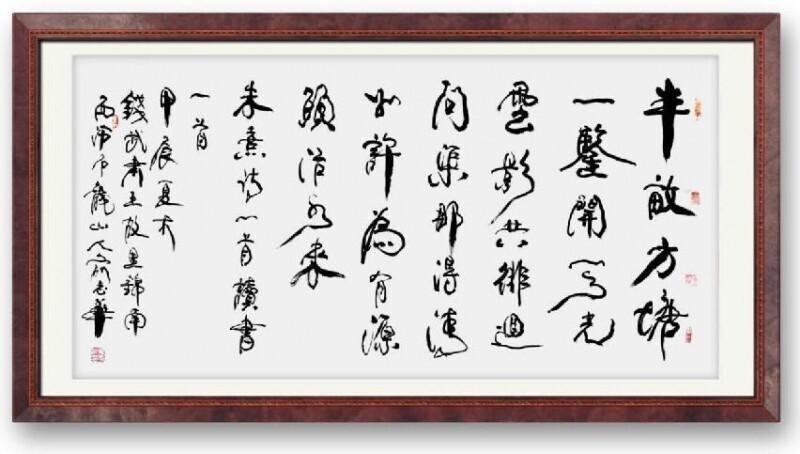 半畝方塘
一鑒開天光
雲影共徘徊
問渠那得清
如許為有源
頭活水來
朱熹詩一首讀書
一首
甲辰夏於
錢武肅王故里錦南
龍山人